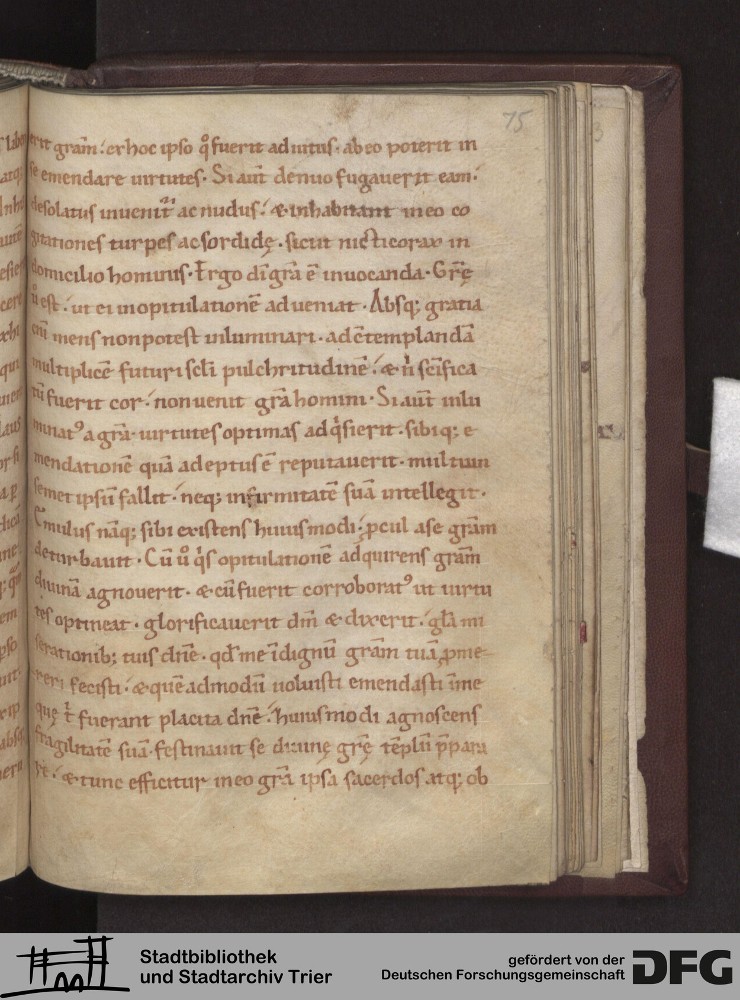 75
erit grām. ex hoc ipso q̊ fuerit adiutus. ab eo poterit in
se emendare uirtutes. Si aut̄ denuo fugauerit eam.
desolatus inuenit̄ ac nudus. & inhabitant in eo co
gitationes turpes ac sordidę. sicut nicticorax in
domicilio hominis. Ergo di grā ē inuocanda. Gr̄ę
ů est. ut ei in opitulationē adueniat. Absq; gratia
enī mens non potest inluminari. ad ctemplandā
multiplicē futuri scli pulchritudinē. & n̄ scīfica
tū fuerit cor. non uenit grā homini. Si aut̄ inlu
minat9 a grā. uirtutes optimas adq̇sierit. sibiq; e
mendationē quā adeptus ē reputauerit. multum
semet ipsū fallit. neq; infirmitatē suā intellegit.
Emulus nāq; sibi existens huiusmodi. pcul a se grām
deturbauit. Cū ů q̇s opitulationē adquirens grām
diuinā agnouerit. & cū fuerit corroborat9 ut uirtu
tes optineat. glorificauerit dm̄ & dixerit. glā mi
serationib; tuis dn̄e. qd̄ me īdignū grām tuā pme
reri fecisti. & quēadmodū uoluisti emendasti ī me
quę t̄ fuerant placita dn̄e. huiusmodi agnoscens
fragilitatē suā. festinauit se diuinę gr̄ę tēplū p̄para
re. & tunc efficitur in eo grā ipsa sacerdos atq; ob
Stadtbibliothek
und Stadtarchiv Trier
gefördert von der
Deutschen Forschungsgemeinschaft
DFG